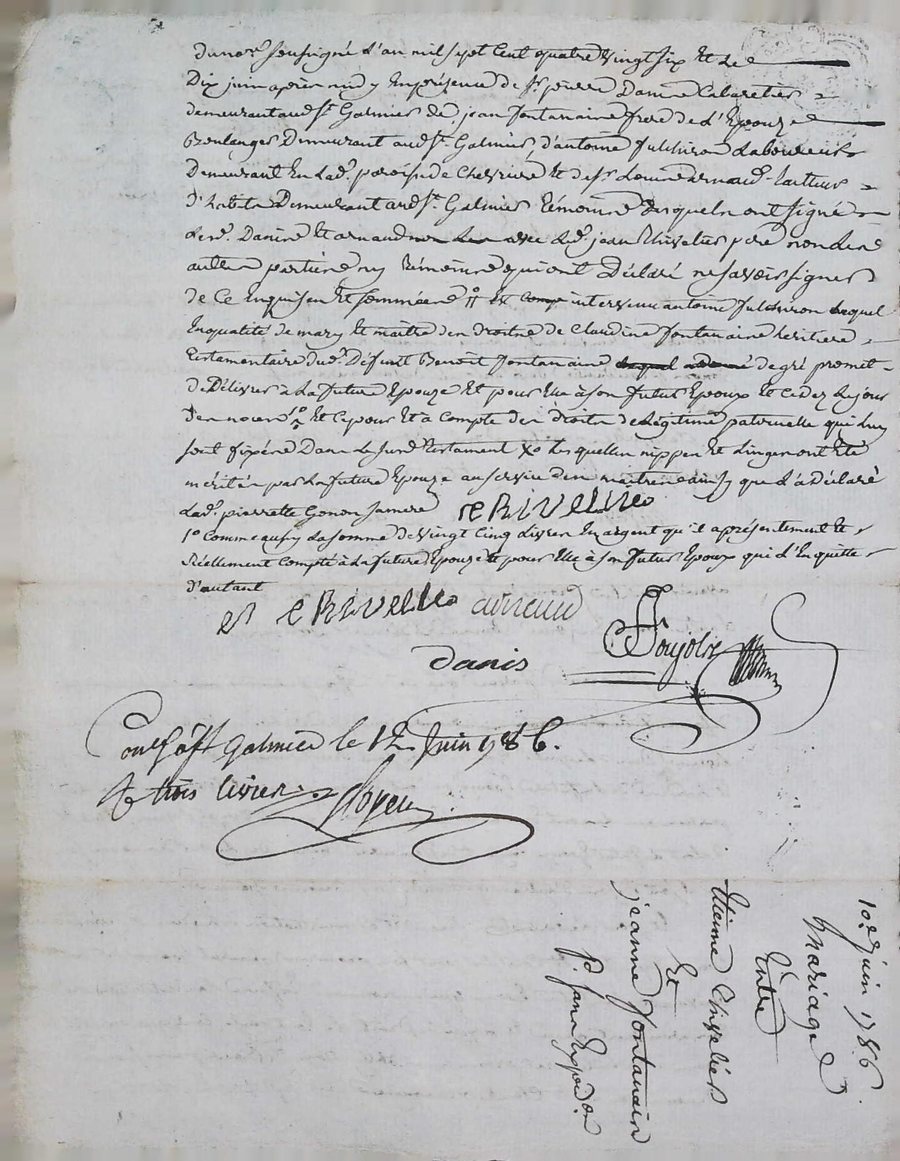 du no.re soussigné l'an mil sept cent quatre vingt six et le
Dix juin après midy en présence de s.r pierre Danis Cabaretier
demeurant aud. st. Galmier de jean fontanaine frere de l'Epouze
Boulanger Demeurant aud. st. Galmier d'antoine fulchiron Laboureur
Demeurant en lad. paroisse de Chevriere et de s.r Louis arnaud tailleur
d'habits Demeurant aud. st. Galmier témoins lesquels ont signé
Lesd. Danis et arnaud avec led. jean Chivalier pere non les
autres parties ny témoins qui ont Déclaré ne savoir signer
de ce enquis et sommées est intervenu antoine fulchiron lequel
en qualité de mary et maitre des droits de Claudine fontanaine heritiere
testamentaire dud. Deffunt Benoit fontanaine de gré promet
de Délivrer à la future Epouze et pour elle à son futur Epoux et ce dez le jour
des noces et ce pour et à compte des droits de Légitime paternelle qui luy
sont fixés Dans le susd. testament lesquelles nippes et linges ont été
mérités par la future Epouze au service des maitres ainsy que l'a Déclaré
Lad. pierrette Gonon sa mere CRIVELIE
1.o Comme aussy la somme de vingt cinq livres en argent qu'il a présentement et
Réellement Compté à la future Epouze et pour elle à son futur Epoux qui l'En quitte
d'autant
CRIVELIE arnaud
danis Poujolat
Con.lé à st galmier le 12 Juin 1786.
R. trois livres
10.e juin 1786.
Mariage
Entre
Etienne Chivalier
Et
jeanne fontanaine
p. sans Expéd.on